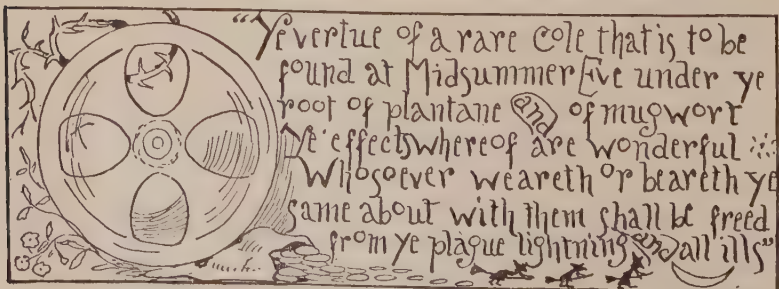 “Ye vertue of a rare Cole that is to be
found at Midsummer Eve under ye
root of plantane and of mugwort
Ye effects whereof are wonderful
Whosoever weareth or beareth ye
same about with them shall be freed
from ye plague lightning and all ills”